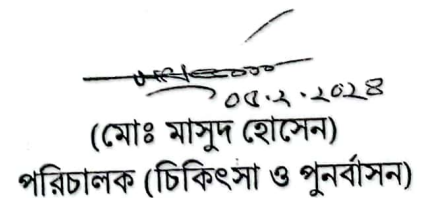 ০৫.২.২০২৪
(মোঃ মাসুদ হোসেন)
পরিচালক (চিকিৎসা ও পুনর্বাসন)